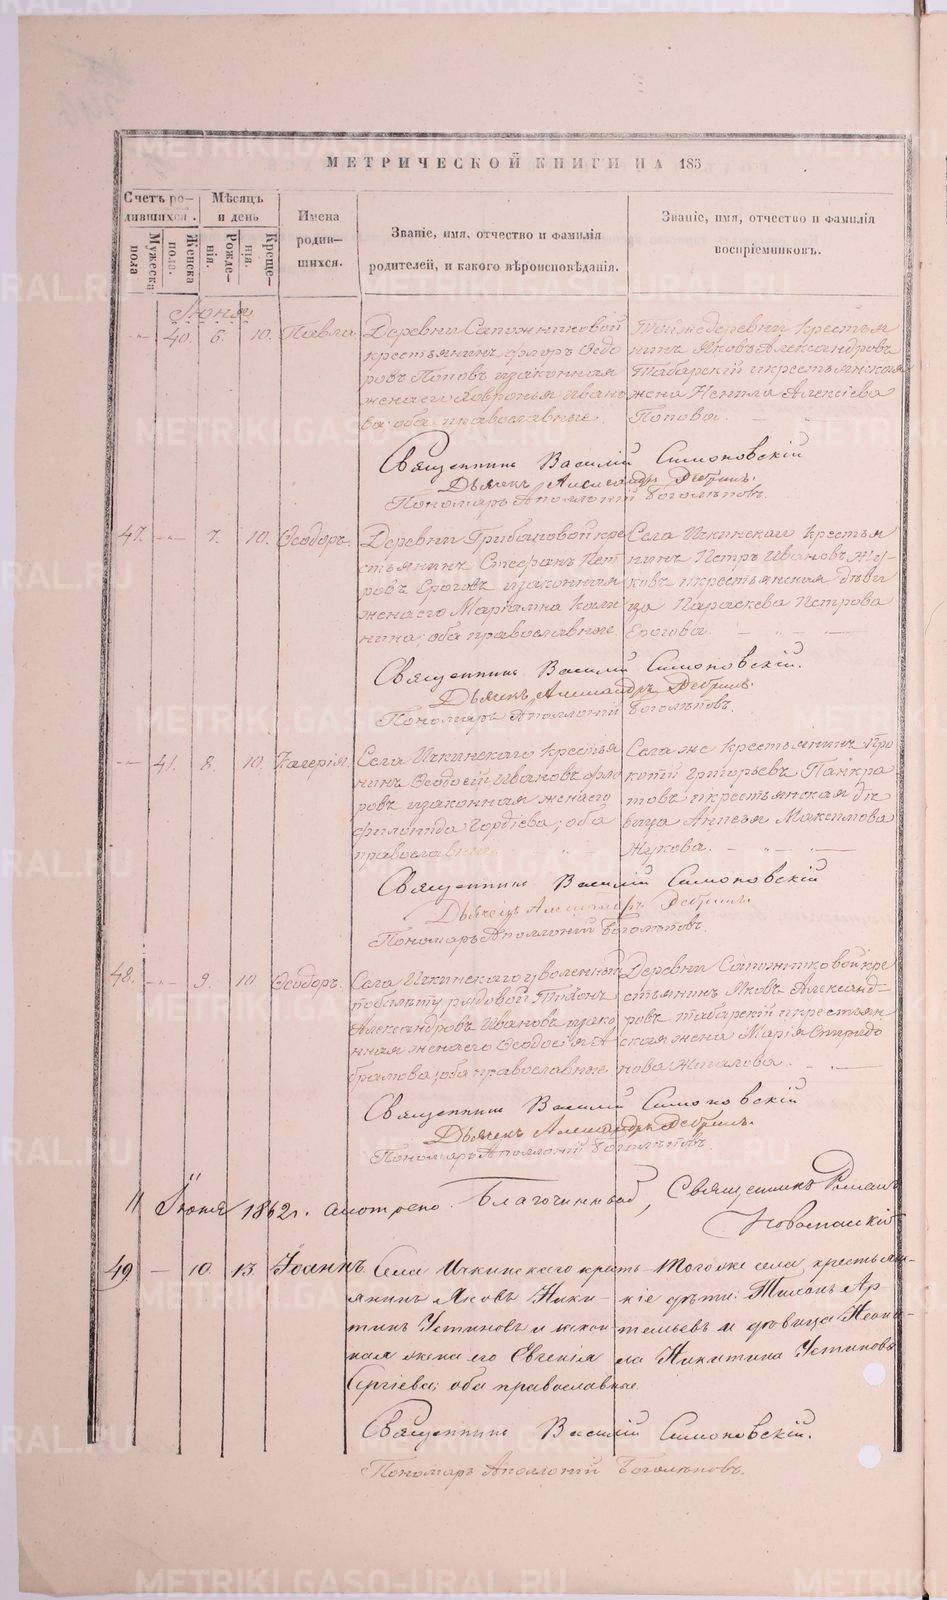 МЕТРИЧЕСКОЙ КНИГИ НА 185
Счетъ ро-
дившихся.
Мужеска пола
Женска пола.
Мѣсяцъ
и день
Рожде-
нія.
Креще-
нія.
Имена
родив-
шихся.
Званіе, имя, отчество и фамилія
родителей, и какого вѣроисповѣданія.
Званіе, имя, отчество и фамилія
воспріемниковъ.
Іюня
40. 6. 10. Павла
Деревни Сапожниковой
крестьянинъ Флоръ Ѳедо
ровъ Поповъ и законная
жена его Хавронья Ивано
ва; оба православные.
Той же деревни крестья
нинъ Яковъ Александровъ
Табарскій и крестьянская
жена Ненила Алексіева
Попова.
Священникъ Василій Симоновскій
Дьячекъ Александръ Дебринъ.
Пономарь Аполлоній Боголѣповъ.
47. 7. 10. Ѳеодоръ.
Деревни Грибановой кре
стьянинъ Стефанъ Пет
ровъ Ероговъ и законная
жена его Маріамна Кали
нина; оба православные
Села Ичкинскаго крестья
нинъ Петръ Ивановъ Жу-
ковъ и крестьянская дѣви
ца Параскева Петрова
Ерогова.
Священникъ Василій Симоновскій.
Дьячекъ Александръ Дебринъ.
Пономарь Аполлоній Боголѣповъ.
41. 8. 10. Калерія.
Села Ичкинскаго крестья
нинъ Ѳеодосій Ивановъ Фло
ровъ и законная жена его
Филонида Гордіева; оба
православные.
Села же крестьянинъ Про
копій Григорьевъ Панкра
товъ и крестьянская дѣ
вица Анисья Максимова
Жукова.
Священникъ Василій Симоновскій
Дьячекъ Александръ Дебринъ.
Пономарь Аполлоній Боголѣповъ.
48. 9. 10. Ѳеодоръ.
Села Ичкинскаго уволенный
по билету рядовой Тихонъ
Александровъ Ивановъ и зако
нная жена его Ѳеодосія А
брамова; оба православные
Деревни Сапожниковой кре
стьянинъ Яковъ Александ-
ровъ Табарскій и крестьян
ская жена Марія Спиридо
нова
Священникъ Василій Симоновскій
Дьячекъ Александръ Дебринъ.
Пономарь Аполлоній Боголѣповъ.
11 Іюня 1862 г. смотрено. Благочинный, Священникъ Романъ
49 10. 13. Іоаннъ
Села Ичкинскаго кресть-
янинъ Яковъ Ники-
тинъ Устиновъ и закон-
ная жена его Евгенія
Сергіева; оба православные.
Того же села, крестьян-
кіе дѣти: Тихонъ Ар-
темьевъ и дѣвица Неони-
ла Никитина Устиновы
Священникъ Василій Симоновскій.
Пономарь Аполлоній Боголѣповъ.
METRIKI.GASO-URAL.RU